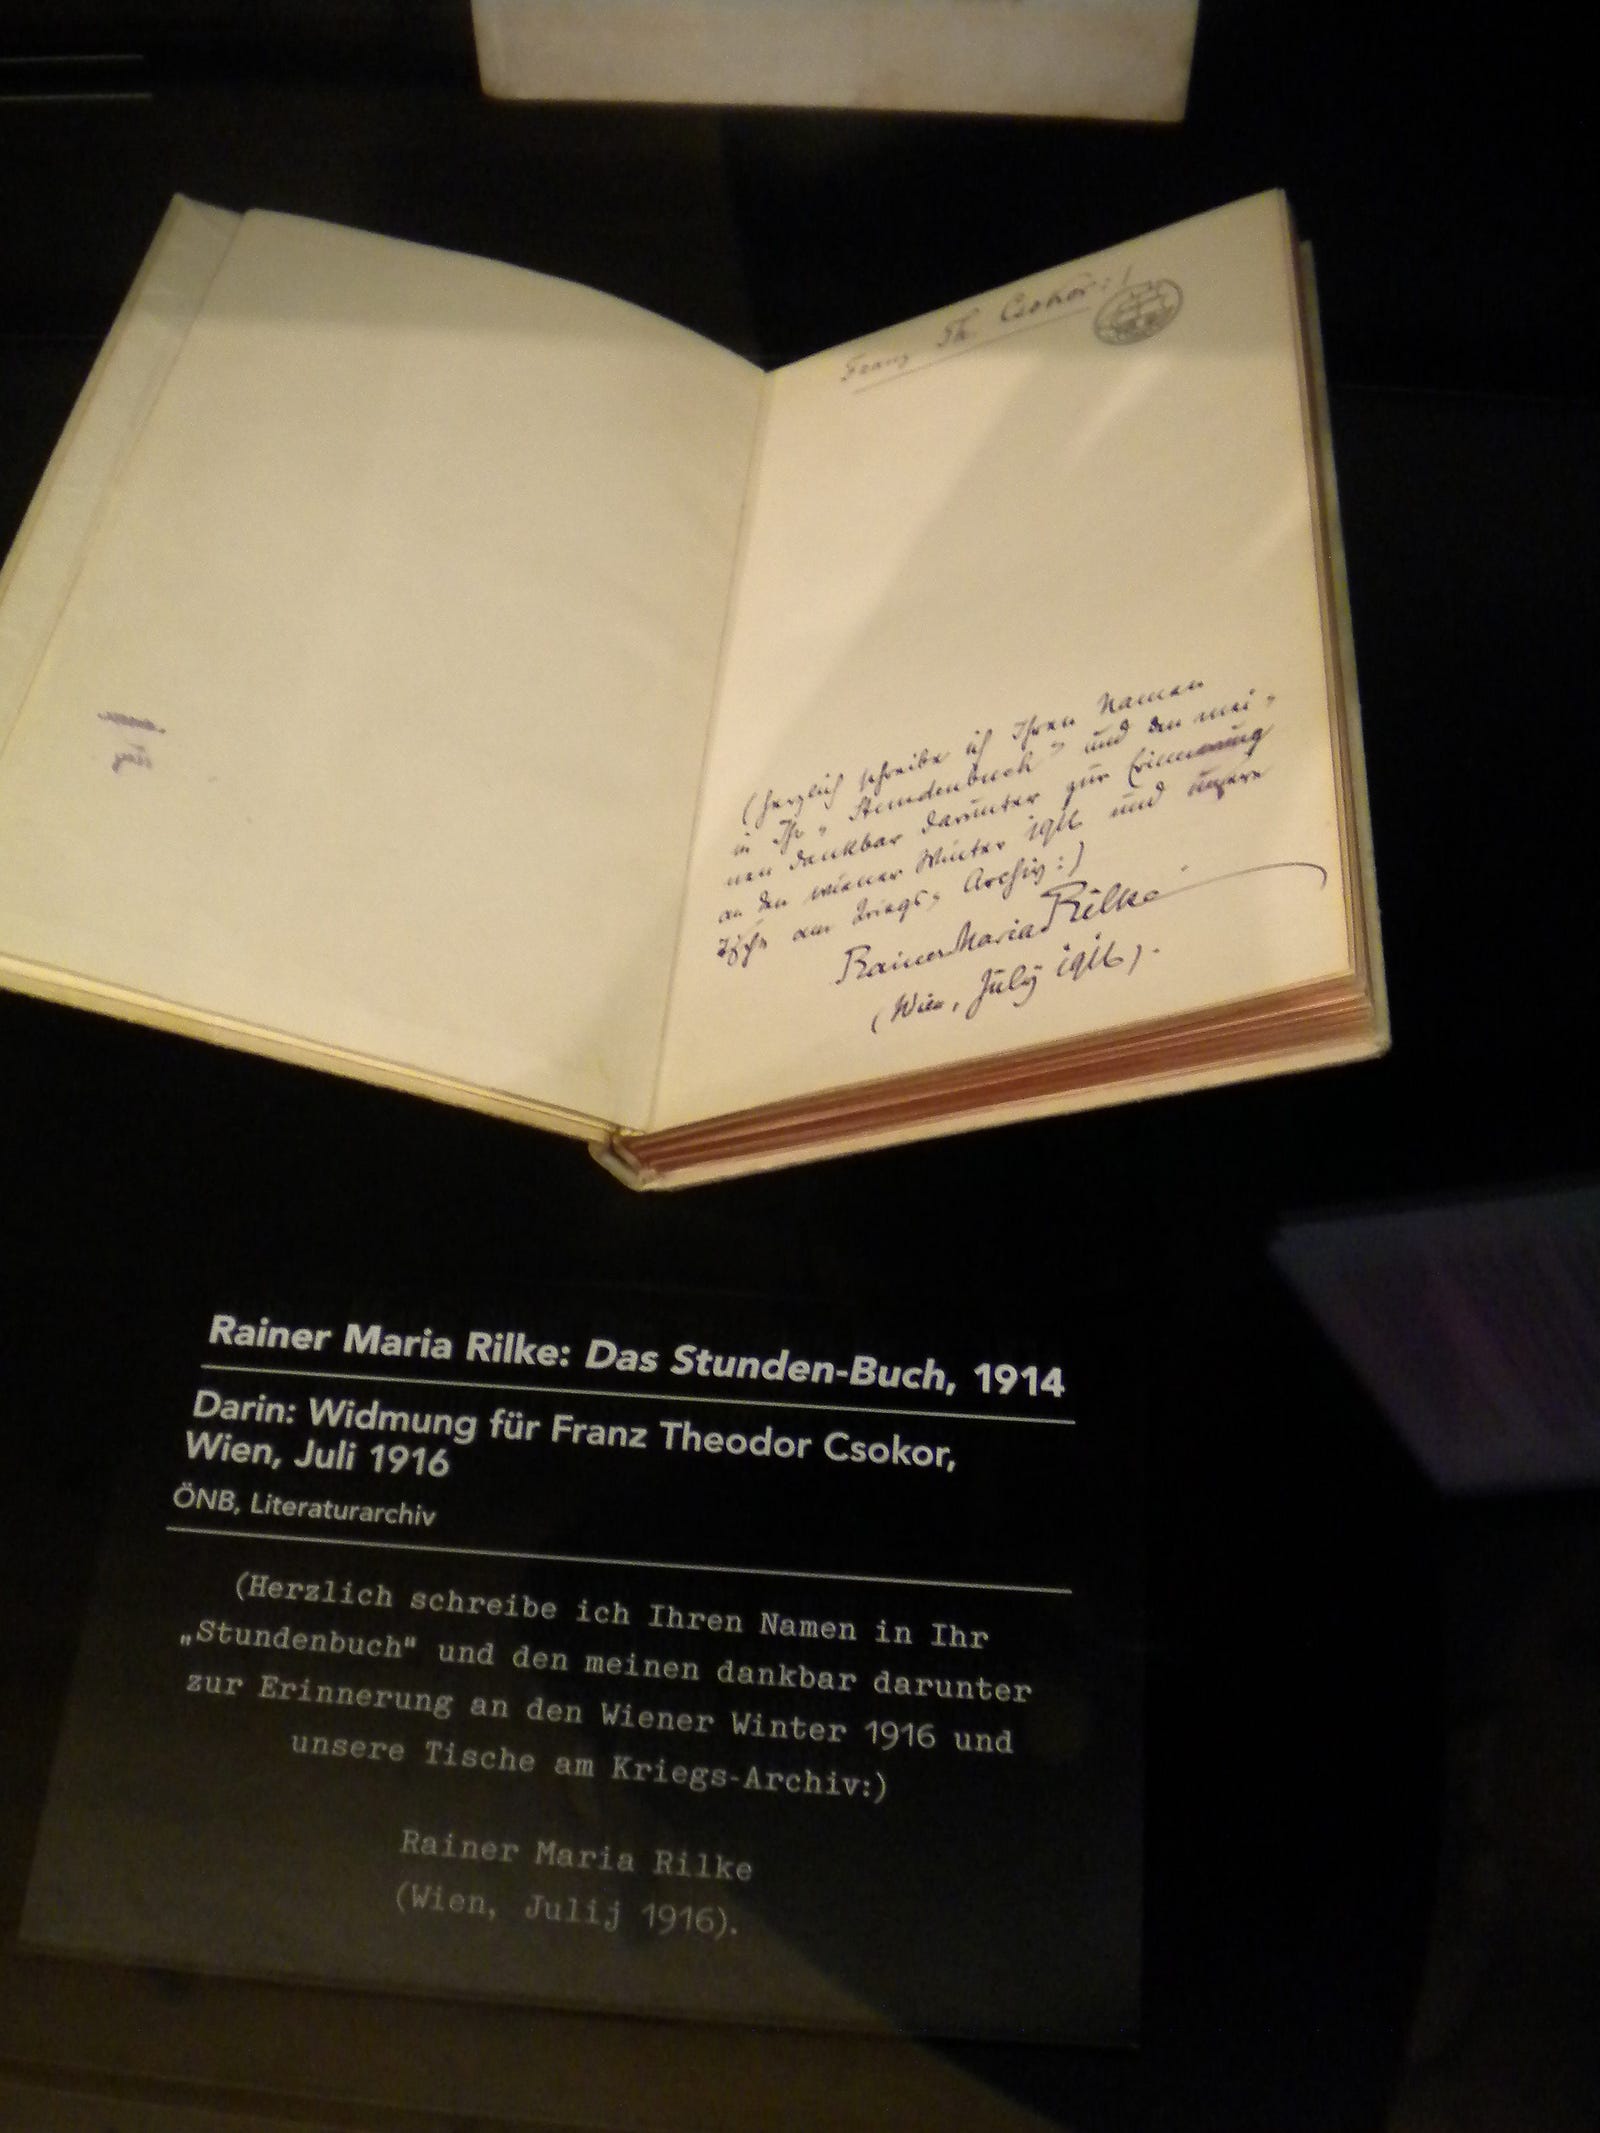 Franz Th. Csokor:)
(Herzlich schreibe ich Ihren Namen
in Ihr „Stundenbuch" und den mei-
nen dankbar darunter zur Erinnerung
an den wiener Winter 1916 und unsere
Tische am Kriegs-Archiv:)
Rainer Maria Rilke
(Wien, Julij 1916).
Rainer Maria Rilke: Das Stunden-Buch, 1914
Darin: Widmung für Franz Theodor Csokor,
Wien, Juli 1916
ÖNB, Literaturarchiv
(Herzlich schreibe ich Ihren Namen in Ihr
„Stundenbuch" und den meinen dankbar darunter
zur Erinnerung an den Wiener Winter 1916 und
unsere Tische am Kriegs-Archiv:)
Rainer Maria Rilke
(Wien, Julij 1916).